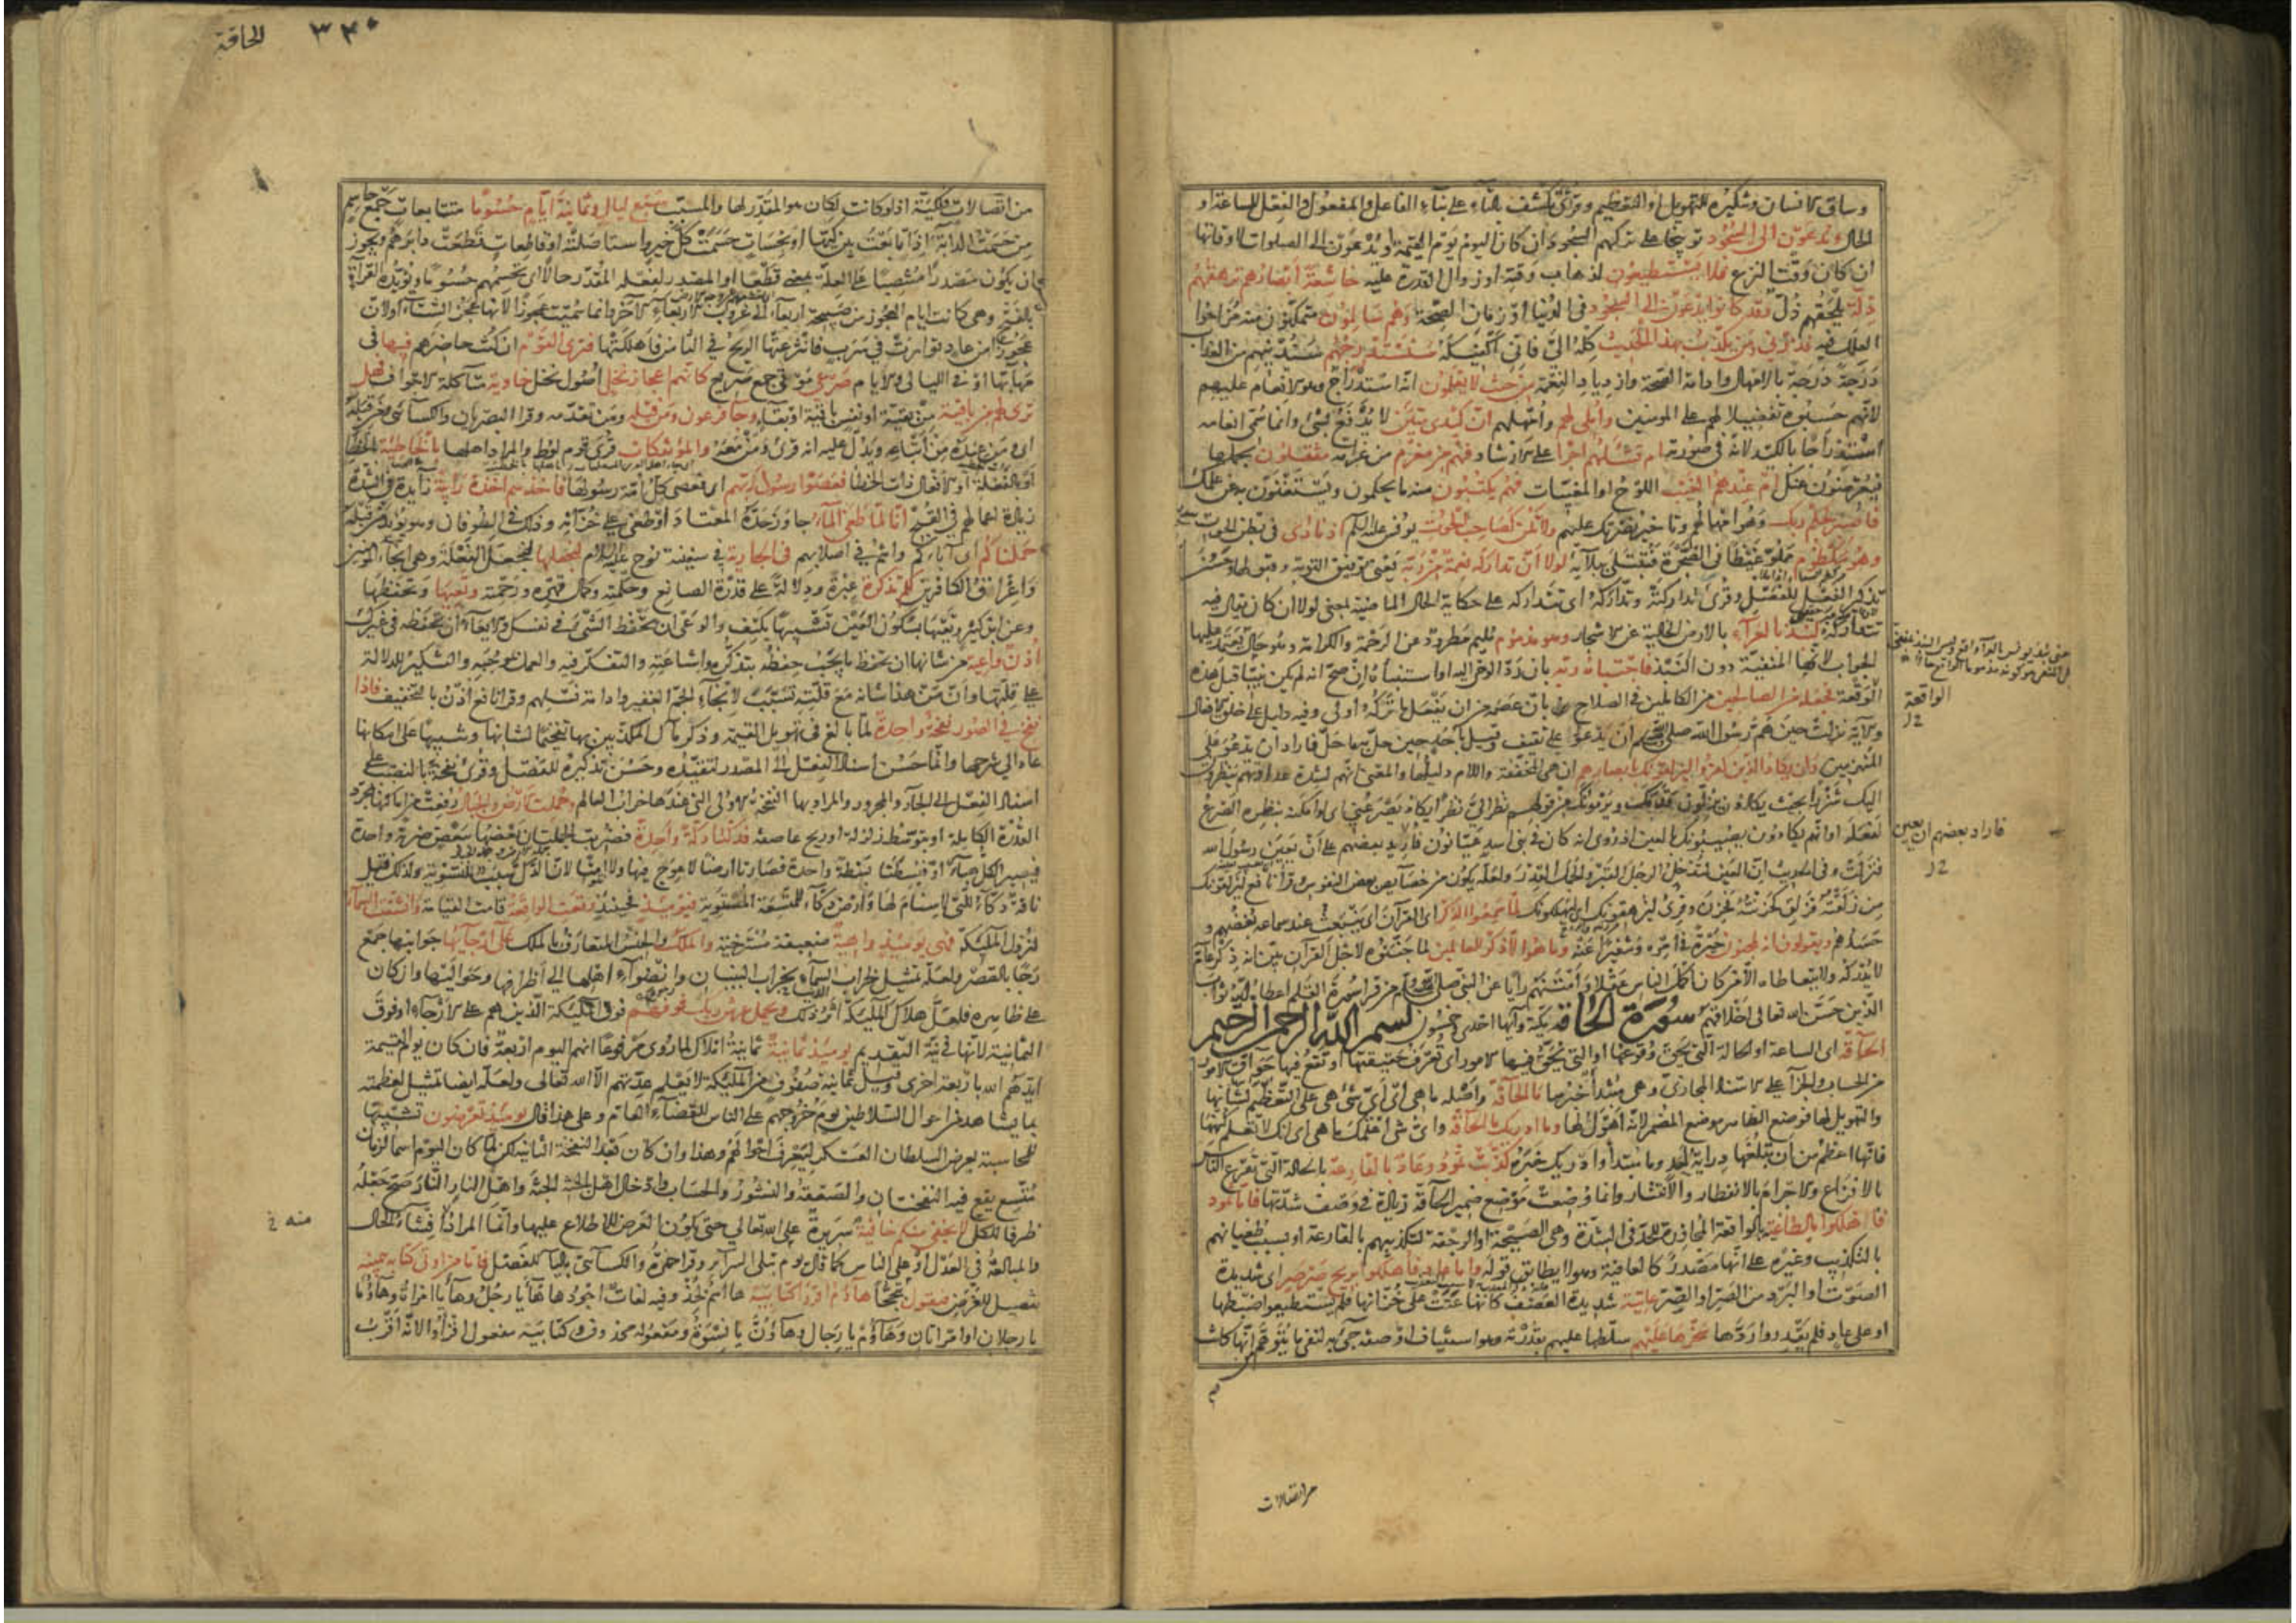 وساق الانسان وتنكيره للتهويل او التعظيم وقرئ تكشف بالتاء على بناء الفاعل والمفعول والفعل للساعة او
الحال ويدعون الى السجود توبيخا على تركهم السجود ان كان اليوم يوم القيمة او يدعون الى الصلوات لاوقاتها
ان كان وقت النزع فلا يستطيعون لذهاب وقته او زوال القدرة عليه خاشعة ابصارهم ترهقهم
ذلة يلحقهم ذل وقد كانوا يدعون الى السجود في الدنيا او زمان الصحة وهم سالمون متمكنون منه مزاحوا
العلل فيه فذرني ومن يكذب بهذا الحديث كله الي فاني اكفيكه سنستدرجهم سندنيهم من العذاب
درجة درجة بالامهال وادامة الصحة وازدياد النعمة من حيث لا يعلمون انه استدراج وهو الانعام عليهم
لانهم حسبوه تفضيلا لهم على المومنين واملي لهم وامهلهم ان كيدي متين لا يدفع بشئ وانما سمى انعامه
استدراجا بالكيد لانه في صورته ام تسئلهم اجرا على الارشاد فهم من مغرم من غرامة مثقلون بحملها
فيعرضون عنك ام عندهم الغيب اللوح او المغيبات فهم يكتبون منه ما يحكمون ويستغنون به عن علمك
فاصبر لحكم ربك وهو امهالهم وتاخير نصرتك عليهم ولا تكن كصاحب الحوت يونس عليه السلم اذ نادى في بطن الحوت
وهو مكظوم مملو غيظا في الضجرة فتبتلى ببلائه لولا ان تداركه نعمة من ربه يعني توفيق التوبة وقبولها وحسن
تذكير الفعل للفصل وقرئ تداركته وتداركه اى تتداركه على حكاية الحال الماضية بمعنى لولا ان كان يقال فيه
تتداركه لنبذ بالعراء بالارض الخالية عن الاشجار وهو مذموم مليم مطرود عن الرحمة والكرامة وهو حال يعتمد عليها
الجواب لانها المنفية دون النبذ فاجتباه ربه بان رد الوحي اليه او استنباه ان صح انه لم يكن نبيا قبل هذه
الوقعة فجعله من الصالحين من الكاملين في الصلاح بان عصمه من ان يفعل ما تركه اولى وفيه دليل على خلق الافعال
والآية نزلت حين هم رسول الله صلى الله عليه وسلم ان يدعو على ثقيف وقيل باحد حين حل به ما حل فاراد ان يدعو على
المنهزمين وان يكاد الذين كفروا ليزلقونك بابصارهم ان هي المخففة واللام دليلها والمعنى انهم لشدة عداوتهم ينظرون
اليك شزرا بحيث يكادون يزلون قدمك ويرمونك من قولهم نظر الي نظرا يكاد يصرعني اى لو امكنه بنظره الصرع
لفعله او انهم يكادون يصيبونك بالعين اذ روى انه كان في بنى اسد عيانون فاريد بعضهم على ان يعين رسول الله
فنزلت وفي الحديث ان العين لتدخل الرجل القبر والجمل القدر ولعله يكون من خصايص بعض النفوس وقرا نافع ليزلقونك
من زلقته فزلق كحزنته فحزن وقرئ ليزهقونك اى ليهلكونك لما سمعوا الذكر اى القران اى ينبعث عند سماعه بغضهم و
حسدهم ويقولون انه لمجنون حيرة في امره وتنفيرا عنه وما هو الا ذكر للعالمين لما جننوه لاجل القرآن بين انه ذكر عام
لا يدركه ولا يتعاطاه الا من كان اكمل الناس عقلا وامتنهم رأيا عن النبي صلى الله عليه وسلم من قرا سورة القلم اعطاه الله ثواب
الذين حسن الله تعالى اخلاقهم سورة الحاقة مكية وآيها احدى وخمسون بسم الله الرحمن الرحيم
الحاقة اى الساعة او الحالة التي يحق وقوعها او التي تحق فيها الامور اى تعرف حقيقتها او تقع فيها حواق الامور
من الحساب والجزاء على الاسناد المجازي وهي مبتدأ خبرها ما الحاقة واصله ما هي اى اى شئ هي على التعظيم لشانها
والتهويل لها فوضع الظاهر موضع المضمر لانه اهول لها وما ادريك ما الحاقة واى شئ اعلمك ما هي اى انك لا تعلم كنهها
فانها اعظم من ان تبلغها دراية احد وما مبتدأ وادريك خبره كذبت ثمود وعاد بالقارعة بالحالة التي تقرع الناس
بالافزاع والاجرام بالانفطار والانتشار وانما وضعت موضع ضمير الحاقة زيادة في وصف شدتها فاما ثمود
فاهلكوا بالطاغية بالواقعة المجاوزة للحد في الشدة وهي الصيحة او الرجفة لتكذيبهم بالقارعة او بسبب طغيانهم
بالتكذيب وغيره على انها مصدر كالعافية وهو لا يطابق قوله واما عاد فاهلكوا بريح صرصر اى شديدة
الصوت او البرد من الصر او الصر عاتية شديدة العصف كانها عتت على خزانها فلم يستطيعوا ضبطها
او على عاد فلم يقدروا ردها سخرها عليهم سلطها عليهم بقدرته وهو استيناف او صفة جئ به لنفي ما يتوهم انها كانت
الواقعة
فاراد بعضهم ان يعين
من اتصالات
الحاقة ٣٤٠
من اتصالات فلكية اذ لو كانت لكان هو المقدر لها والمسبب سبع ليال وثمانية ايام حسوما متتابعات جمع حاسم
من حسمت الدابة اذا تابعت بين كيها او نحسات حسمت كل خير واستاصلته او قاطعات قطعت دابرهم ويجوز
ان يكون مصدرا منتصبا على العلة بمعنى قطعا او المصدر لفعله المقدر حالا اى تحسمهم حسوما ويؤيده القراءة
بالفتح وهي كانت ايام العجوز من صبيحة اربعاء الى غروب الاربعاء الآخر وانما سميت عجوزا لانها عجز الشتاء او لان
عجوزا من عاد توارت في سرب فانتزعتها الريح في الثامن فاهلكتها فترى القوم ان كنت حاضرهم فيها في
مهابها او في الليالى والايام صرعى موتى جمع صريع كانهم اعجاز نخل اصول نخل خاوية متآكلة الاجواف فهل
ترى لهم من باقية من بقية او نفس باقية او بقاء وجاء فرعون ومن قبله ومن تقدمه وقرا البصريان والكسائي ومن قبله
اى ومن عنده من اتباعه ويدل عليه انه قرئ ومن معه والمؤتفكات قرى قوم لوط والمراد اهلها بالخاطئة بالخطا
او بالفعلة او الافعال ذات الخطا فعصوا رسول ربهم اى فعصى كل امة رسولها فاخذهم اخذة رابية زايدة في الشدة
زيادة اعمالهم في القبح انا لما طغى الماء جاوز حده المعتاد او طغى على خزانه وذلك في الطوفان وهو يؤيد من قبله
حملناكم اى آباءكم وانتم في اصلابهم في الجارية في سفينة نوح عليه السلام لنجعلها لنجعل الفعلة وهي انجاء المومنين
واغراق الكافرين لكم تذكرة عبرة ودلالة على قدرة الصانع وحكمته وكمال قهره ورحمته وتعيها وتحفظها
وعن ابن كثير وتعيها بسكون العين تشبيها بكتف والوعى ان تحفظ الشئ في نفسك والايعاء ان تحفظه في غيرك
اذن واعية من شانها ان تحفظ ما يجب حفظه بتذكره واشاعته والتفكر فيه والعمل بموجبه والتنكير للدلالة
على قلتها وان من هذا شانه مع قلته تسبب لانجاء الجم الغفير وادامة نسلهم وقرا نافع اذن بالتخفيف فاذا
نفخ في الصور نفخة واحدة لما بالغ في تهويل القيمة وذكر مآل المكذبين بها تفخيما لشانها وتنبيها على امكانها
عاد الى شرحها وانما حسن اسناد الفعل الى المصدر لتقيده وحسن تذكيره للفصل وقرئ نفخة بالنصب على
اسناد الفعل الى الجار والمجرور والمراد بها النفخة الاولى التي عندها خراب العالم وحملت الارض والجبال رفعت من اماكنها بمجرد
القدرة الكاملة او بتوسط زلزلة او ريح عاصفة فدكتا دكة واحدة فضربت الجملتان بعضها ببعض ضربة واحدة
فيصير الكل هباء او فبسطتا بسطة واحدة فصارتا ارضا لا عوج فيها ولا امتا لان الدك سبب للتسوية ولذلك قيل
ناقة دكاء للتي لا سنام لها وارض دكاء للمتسعة المستوية فيومئذ فحينئذ وقعت الواقعة قامت القيامة وانشقت السماء
لنزول الملئكة فهي يومئذ واهية ضعيفة مسترخية والملك والجنس المتعارف بالملك على ارجائها جوانبها جمع
رجا بالقصر ولعله تمثيل لخراب السماء بخراب البنيان وانضواء اهلها الى اطرافها وحواليها وان كان
على ظاهره فلعل هلاك الملئكة اثر ذلك ويحمل عرش ربك فوقهم فوق الملئكة الذين هم على الارجاء او فوق
الثمانية لانها في نية التقديم يومئذ ثمانية ثمانية املاك لما روى مرفوعا انهم اليوم اربعة فاذا كان يوم القيمة
ايدهم الله باربعة اخرى وقيل ثمانية صفوف من الملئكة لا يعلم عدتهم الا الله تعالى ولعله ايضا تمثيل لعظمته
بما يشاهد من احوال السلاطين يوم خروجهم على الناس للقضاء العام وعلى هذا قال يومئذ تعرضون تشبيها
للمحاسبة بعرض السلطان العسكر ليتعرف احوالهم وهذا وان كان بعد النفخة الثانية لكن لما كان اليوم اسما لزمان
متسع يقع فيه النفختان والصعقة والنشور والحساب وادخال اهل الجنة الجنة واهل النار النار صح جعله
ظرفا للكل لا يخفى منكم خافية سريرة على الله تعالى حتى يكون العرض للاطلاع عليها وانما المراد افشاء الحال
والمبالغة في العدل او على الناس كما قال يوم تبلى السرآير وقرا حمزة والكسائي بالياء للفصل فاما من اوتي كتابه بيمينه
تفصيل للعرض فيقول تبجحا هاؤم اقرؤا كتابيه ها اسم لخذ وفيه لغات اجودها هاء يا رجل وهاء يا امراة وهاؤما
يا رجلان او امراتان وهاؤم يا رجال وهاؤن يا نسوة ومفعوله محذوف وكتابيه مفعول اقرؤا لانه اقرب